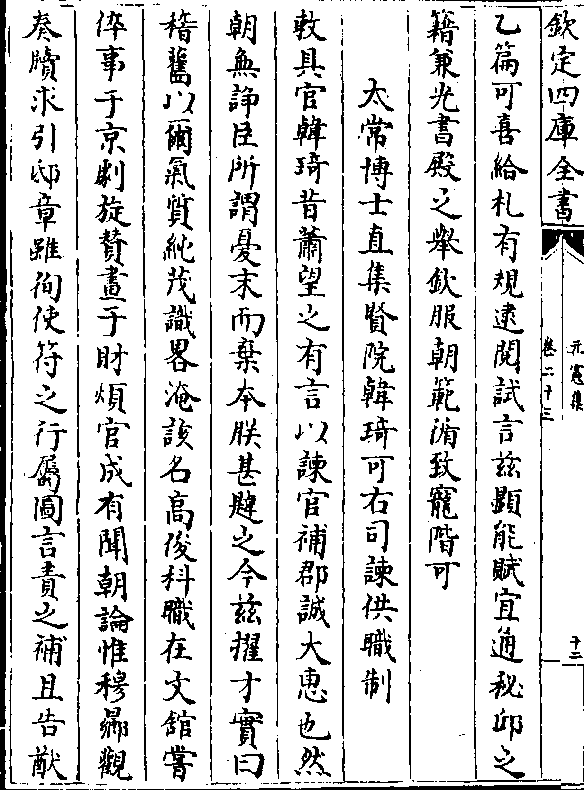 欽定四庫全書
元憲集
卷二十三
十二
乙篇可喜給札有規逮閱試言茲顯能賦宜通秘邱之
籍兼光書殿之舉欽服朝範滫致寵階可
太常博士直集賢院韓琦可右司諫供職制
敕具官韓琦昔蕭望之有言以諫官補郡誠大惠也然
朝無諍臣所謂憂末而棄本朕甚韙之今茲擢才實曰
稽舊以爾氣質純茂識畧淹該名高俊科職在文館嘗
倅事于京劇旋贊畫于財煩官成有聞朝論惟穆歸觀
奏牘求引邸章雖徇使符之行屬圖言責之補且告猷